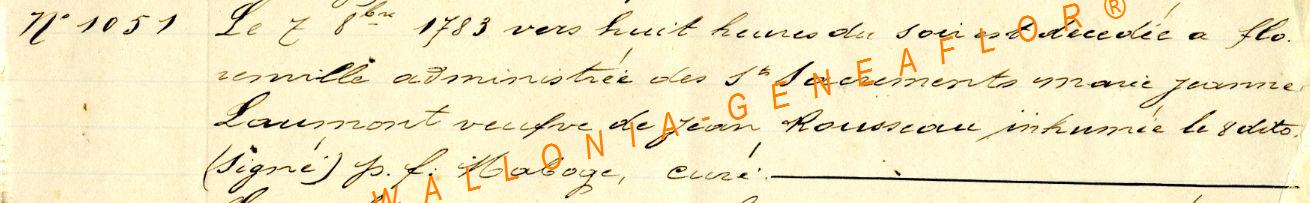 N° 1051 Le 7 8bre 1783 vers huit heures du soir est decedée a flo.
renville administrée des Sts Sacrements marie jeanne
Laumont veufve de jean Rousseau inhumée le 8 dito.
(signé) p. f. Maboge, curé.
WALLONIA-GENEAFLOR®